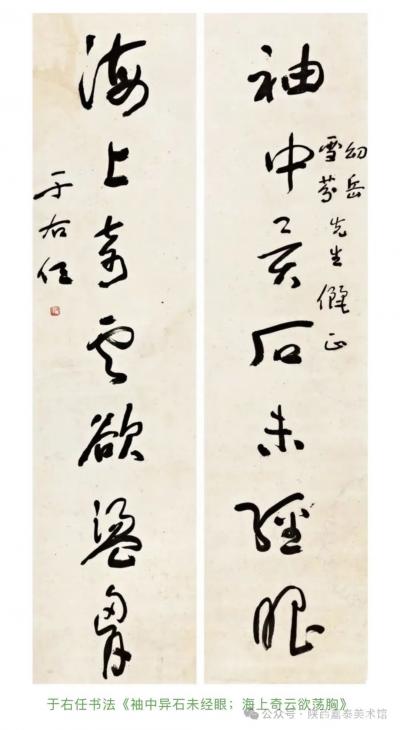 袖中異石未經眼
幼岳
雪芬先生儷正
海上奇雲欲盪胷
于右任
于右任书法《袖中异石未经眼；海上奇云欲荡胸》
公众号 · 陕西嘉泰美术馆